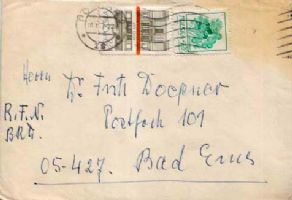 Herrn Dr. Fritz Doepner
R.F.N. Postfach 101
BRD.
05-427. Bad Ems